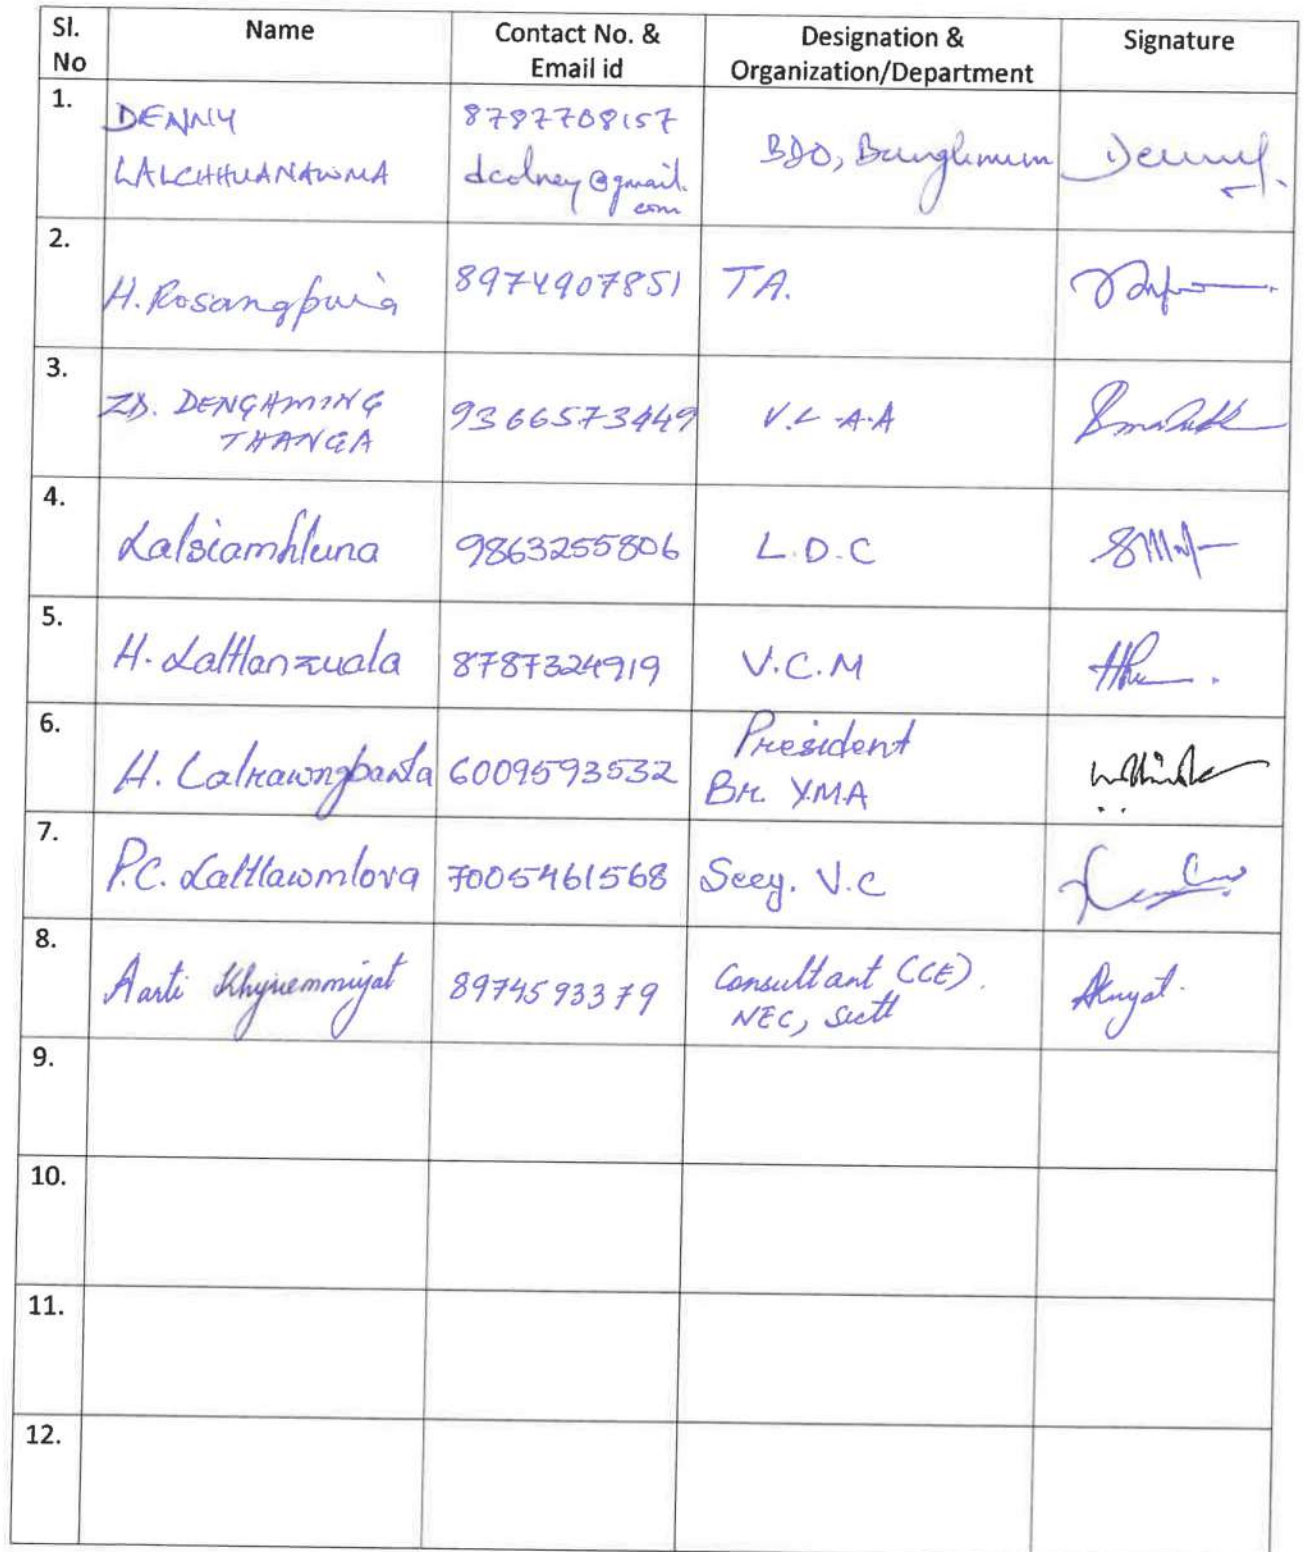 Sl. No Name Contact No. & Email id Designation & Organization/Department Signature
1. DENNY LALCHHUANAWMA 8787708157 dcdney@gmail.com BDO, Bunghmun Denny.
2. H. Rosangpuia 8974907851 TA.
3. ZD. DENGHMING THANGA 9366573449 V.L-A.A
4. Lalsiamhluna 9863255806 L.D.C
5. H. Laltlanzuala 8787324919 V.C.M
6. H. Lalrawngbawla 6009593532 President Br. Y.M.A
7. P.C. Laltlawmlova 7005461568 Secy. V.C
8. Aarti Khyriemmujat 8974593379 Consultant (CCE). NEC, Sectt
9.
10.
11.
12.